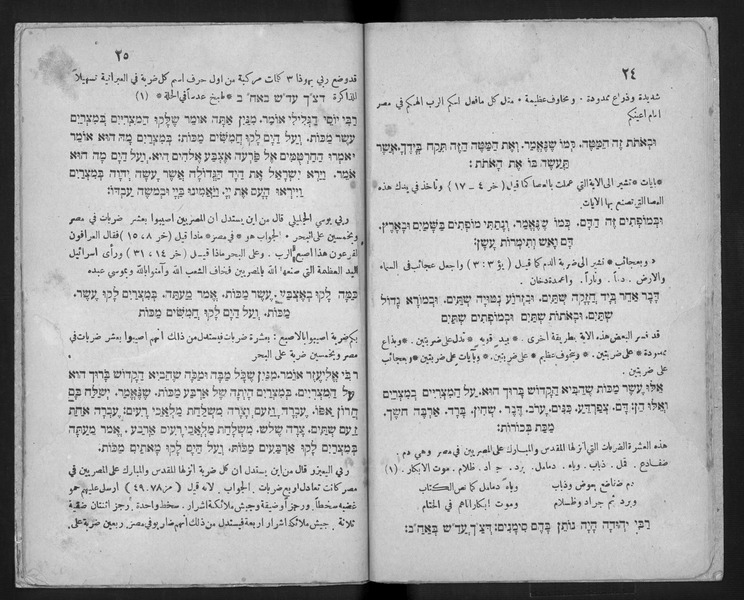 ٢٤
شديدة وذراع ممدودة · ومخاوف عظيمة · مثل كل مافعل لكم الرب الهكم في مصر
امام اعينكم
וּבְאֹתוֹת זֶה הַמַּטֶּה. כְּמוֹ שֶׁנֶּאֱמַר. וְאֶת הַמַּטֶּה הַזֶּה תִּקַּח בְּיָדֶךָ. אֲשֶׁר
תַּעֲשֶׂה בּוֹ אֶת הָאֹתֹת:
*بايات* تشير الى الاية التي عملت بالعصا كما قيل (خر ٤ – ١٧) وتأخذ في يدك هذه
العصا التي تصنع بها الايات
וּבְמוֹפְתִים זֶה הַדָּם. כְּמוֹ שֶׁנֶּאֱמַר. וְנָתַתִּי מוֹפְתִים בַּשָּׁמַיִם וּבָאָרֶץ.
דָּם וָאֵשׁ וְתִימְרוֹת עָשָׁן:
*وبعجائب* تشير الى ضربة الدم كما قيل (يؤ ٣ : ٣) واجعل عجائب في السماء
والارض . دماً . وناراً . واعمدة دخان .
דָּבָר אַחֵר בְּיָד חֲזָקָה שְׁתַּיִם. וּבִזְרוֹעַ נְטוּיָה שְׁתַּיִם. וּבְמוֹרָא גָּדוֹל
שְׁתַּיִם. וּבְאֹתוֹת שְׁתַּיִם וּבְמוֹפְתִים שְׁתַּיִם
قد فسر البعض هذه الاية بطريقة اخرى . *بيد قوية* تدل على ضربتين . *وبذراع
ممدودة* على ضربتين . *وبخوف عظيم* على ضربتين . *وبآيات* على ضربتين *وبعجائب*
على ضربتين
אֵלּוּ עֶשֶׂר מַכּוֹת שֶׁהֵבִיא הַקָּדוֹשׁ בָּרוּךְ הוּא. עַל הַמִּצְרִיִּים בְּמִצְרַיִם
וְאֵלּוּ הֵן: דָּם. צְפַרְדֵּעַ. כִּנִּים. עָרוֹב. דֶּבֶר. שְׁחִין. בָּרָד. אַרְבֶּה. חשֶׁךְ.
מַכַּת בְּכוֹרוֹת:
هذه العشرة الضربات التي أنزلها المقدس والمبارك على المصريين في مصر وهي دم .
ضفادع . قمل . ذباب . وباء . دمامل . برد . جراد . ظلام . موت الابكار . (١)
دم ضفادع بعوض وذباب وباء دمامل كما نص الكتاب
وبرد ثم جراد وظلام وموت ابكار اتاهم في الختام .
רַבִּי יְהוּדָה הָיָה נוֹתֵן בָּהֶם סִימָנִים: דְּצַ״ךְ עֲדַ״שׁ בְּאַחַ״ב:
٢٥
قد وضع ربي يهوذا ٣ كلمات مركبة من اول حرف اسم كل ضربة في العبرانية تسهيلاً
للذاكرة דצ״ך עד״ש באח״ב *طبخ عدساً في الحلة* (١)
רַבִּי יוֹסֵי הַגְּלִילִי אוֹמֵר. מִנַּיִן אַתָּה אוֹמֵר שֶׁלָּקוּ הַמִּצְרִיִּים בְּמִצְרַיִם
עֶשֶׂר מַכּוֹת. וְעַל הַיָּם לָקוּ חֲמִשִּׁים מַכּוֹת: בְּמִצְרַיִם מָה הוּא אוֹמֵר
וַיֹּאמְרוּ הַחַרְטֻמִּים אֶל פַּרְעֹה אֶצְבַּע אֱלֹהִים הִיא. וְעַל הַיָּם מַה הוּא
אוֹמֵר. וַיַּרְא יִשְׂרָאֵל אֶת הַיָּד הַגְּדוֹלָה אֲשֶׁר עָשָׂה יְהוָה בְּמִצְרַיִם
וַיִּירְאוּ הָעָם אֶת יְיָ. וַיַּאֲמִינוּ בַּיְיָ וּבְמשֶׁה עַבְדּוֹ:
ربي يوسي الجليلي قال من اين يستدل ان المصريين اصيبوا بعشر ضربات في مصر
وبخمسين على البحر . الجواب هو *في مصر* ماذا قيل (خر ٨، ١٥) فقال العرافون
لفرعون هذا اصبع الرب . وعلى البحر ماذا قيل (خر ١٤، ٣١) ورأى اسرائيل
اليد العظيمة التي صنعها الله بالمصريين فخاف الشعب الله وآمنوا بالله وبموسى عبده
כַּמָּה לָקוּ בְאֶצְבַּע. עֶשֶׂר מַכּוֹת. אֱמֹר מֵעַתָּה. בְּמִצְרַיִם לָקוּ עֶשֶׂר.
מַכּוֹת. וְעַל הַיָּם לָקוּ חֲמִשִּׁים מַכּוֹת
بكم ضربة اصيبوا بالاصبع : بعشرة ضربات فيستدل من ذلك انهم اصيبوا بعشر ضربات في
مصر وبخمسين ضربة على البحر
רַבִּי אֱלִיעֶזֶר אוֹמֵר. מִנַּיִן שֶׁכָּל מַכָּה וּמַכָּה שֶׁהֵבִיא הַקָּדוֹשׁ בָּרוּךְ הוּא
עַל הַמִּצְרִיִּים. בְּמִצְרַיִם הָיְתָה שֶׁל אַרְבַּע מַכּוֹת. שֶׁנֶּאֱמַר. יְשַׁלַּח בָּם
חֲרוֹן אַפּוֹ. עֶבְרָה. וָזַעַם וְצָרָה מִשְׁלַחַת מַלְאֲכֵי רָעִים: עֶבְרָה אַחַת
זַעַם שְׁתַּיִם. צָרָה שָׁלשׁ. מִשְׁלַחַת מַלְאֲכֵי רָעִים אַרְבַּע. אֱמֹר מֵעַתָּה
בְּמִצְרַיִם לָקוּ אַרְבָּעִים מַכּוֹת. וְעַל הַיָּם לָקוּ מָאתַיִם מַכּוֹת:
ربي اليعيزر قال من اين يستدل ان كل ضربة انزلها المقدس والمبارك على المصريين في
مصر كانت تعادل اربع ضربات . الجواب . لانه قيل (مز ٧٨، ٤٩) ارسل عليهم حمو
غضبه سخطاً ورجزاً وضيقة وجيش ملائكة اشرار . سخط واحدة . رجز اثنتان ضيقة
ثلاثة . جيش ملائكة اشرار اربعة فيستدل من ذلك أنهم ضربوا في مصر اربعين ضربة على